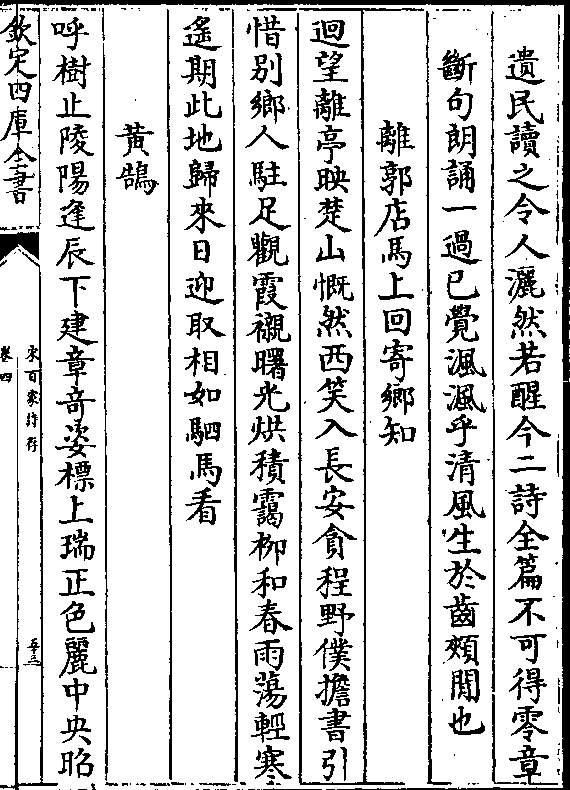 遺民讀之令人灑然若醒今二詩全篇不可得零章
斷句朗誦一過已覺渢渢乎清風生於齒頰間也
離郭店馬上回寄鄉知
迴望離亭映楚山慨然西笑入長安貪程野僕擔書引
惜別鄉人駐足觀霞襯曙光烘積靄柳和春雨蕩輕寒
遙期此地歸來日迎取相如駟馬看
黃鵠
呼樹止陵陽逢辰下建章奇姿標上瑞正色麗中央昭
欽定四庫全書
宋百家詩存
卷四
五三